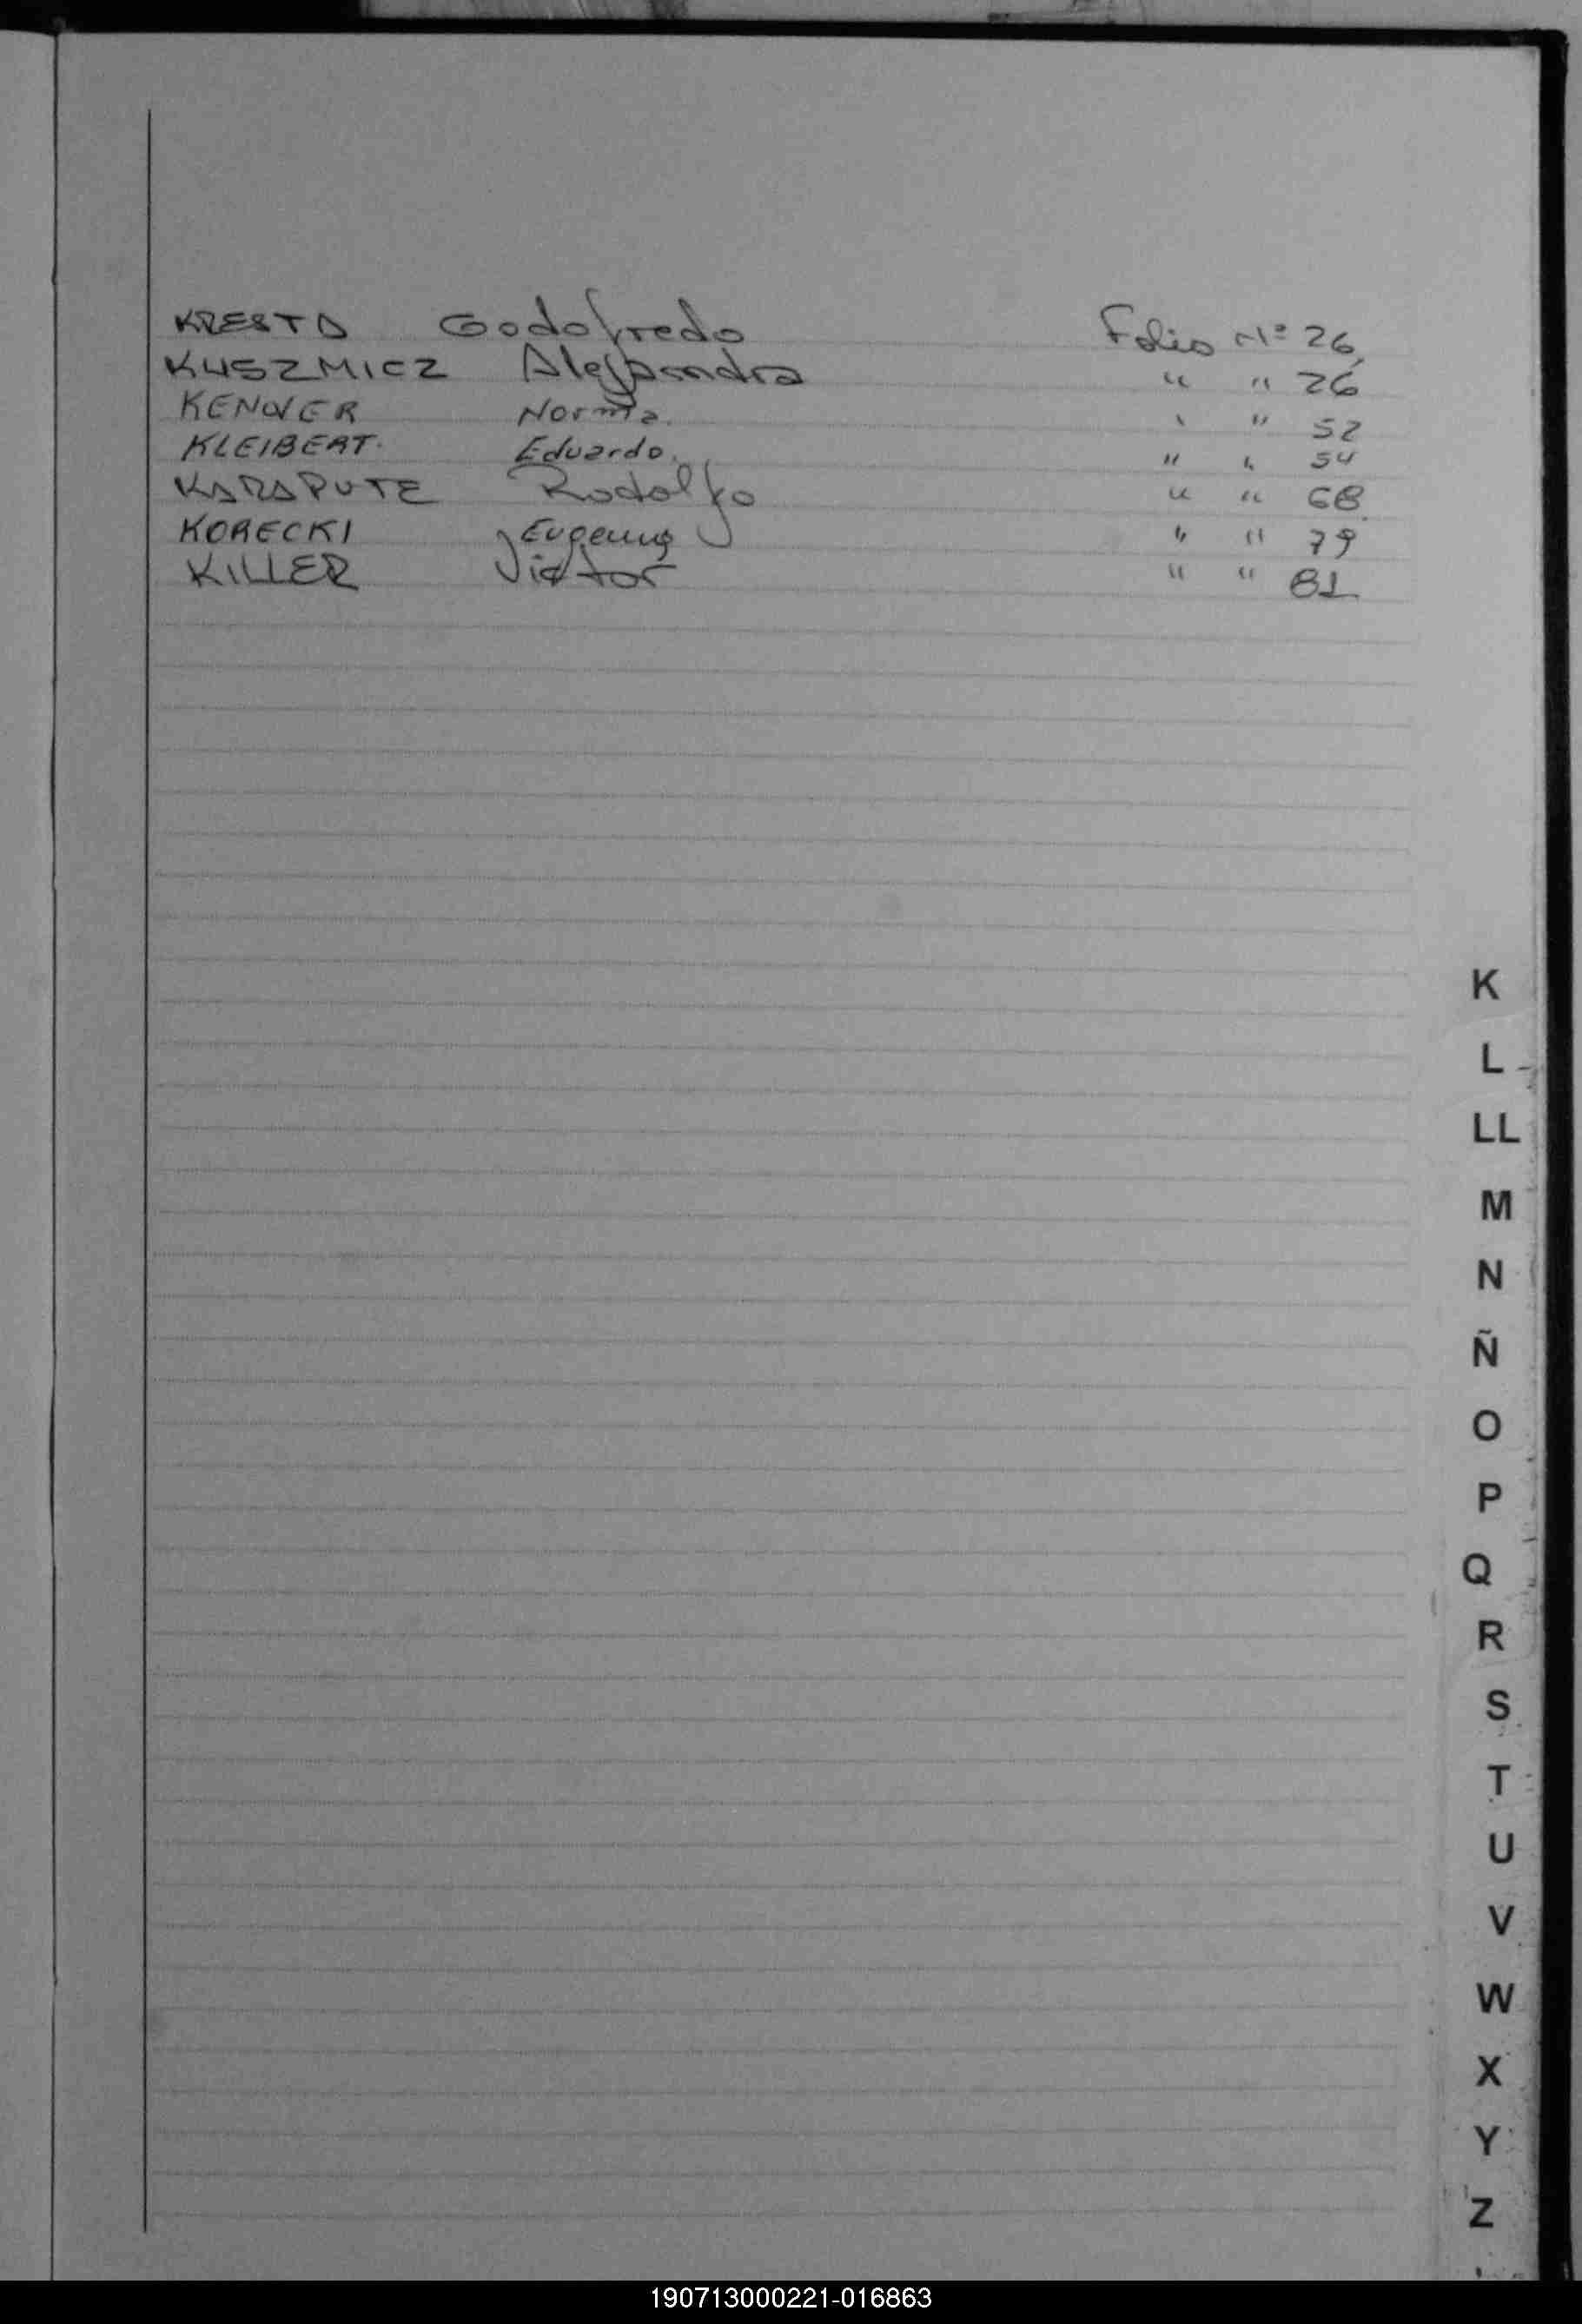 KRESTA Godofredo Folio Nº 26
KUSZMICZ Alejandra " " 26
KENNER Norma. " " 52
KLEIBERT. Eduardo. " " 54
KARAPUTE Rodolfo " " 68
KORECKI Eugenia " " 79
KILLER Victor " " 81
K
L
LL
M
N
Ñ
O
P
Q
R
S
T
U
V
W
X
Y
Z
190713000221-016863